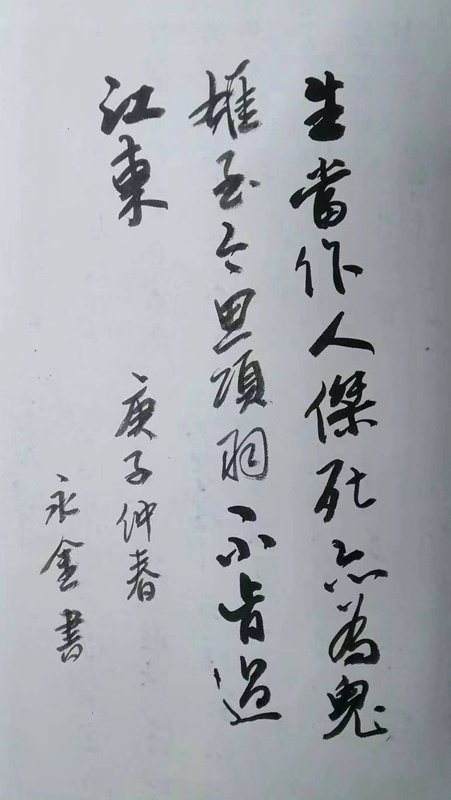 生當作人傑死亦為鬼
雄至今思項羽不肯過
江東
庚子仲春
永金書